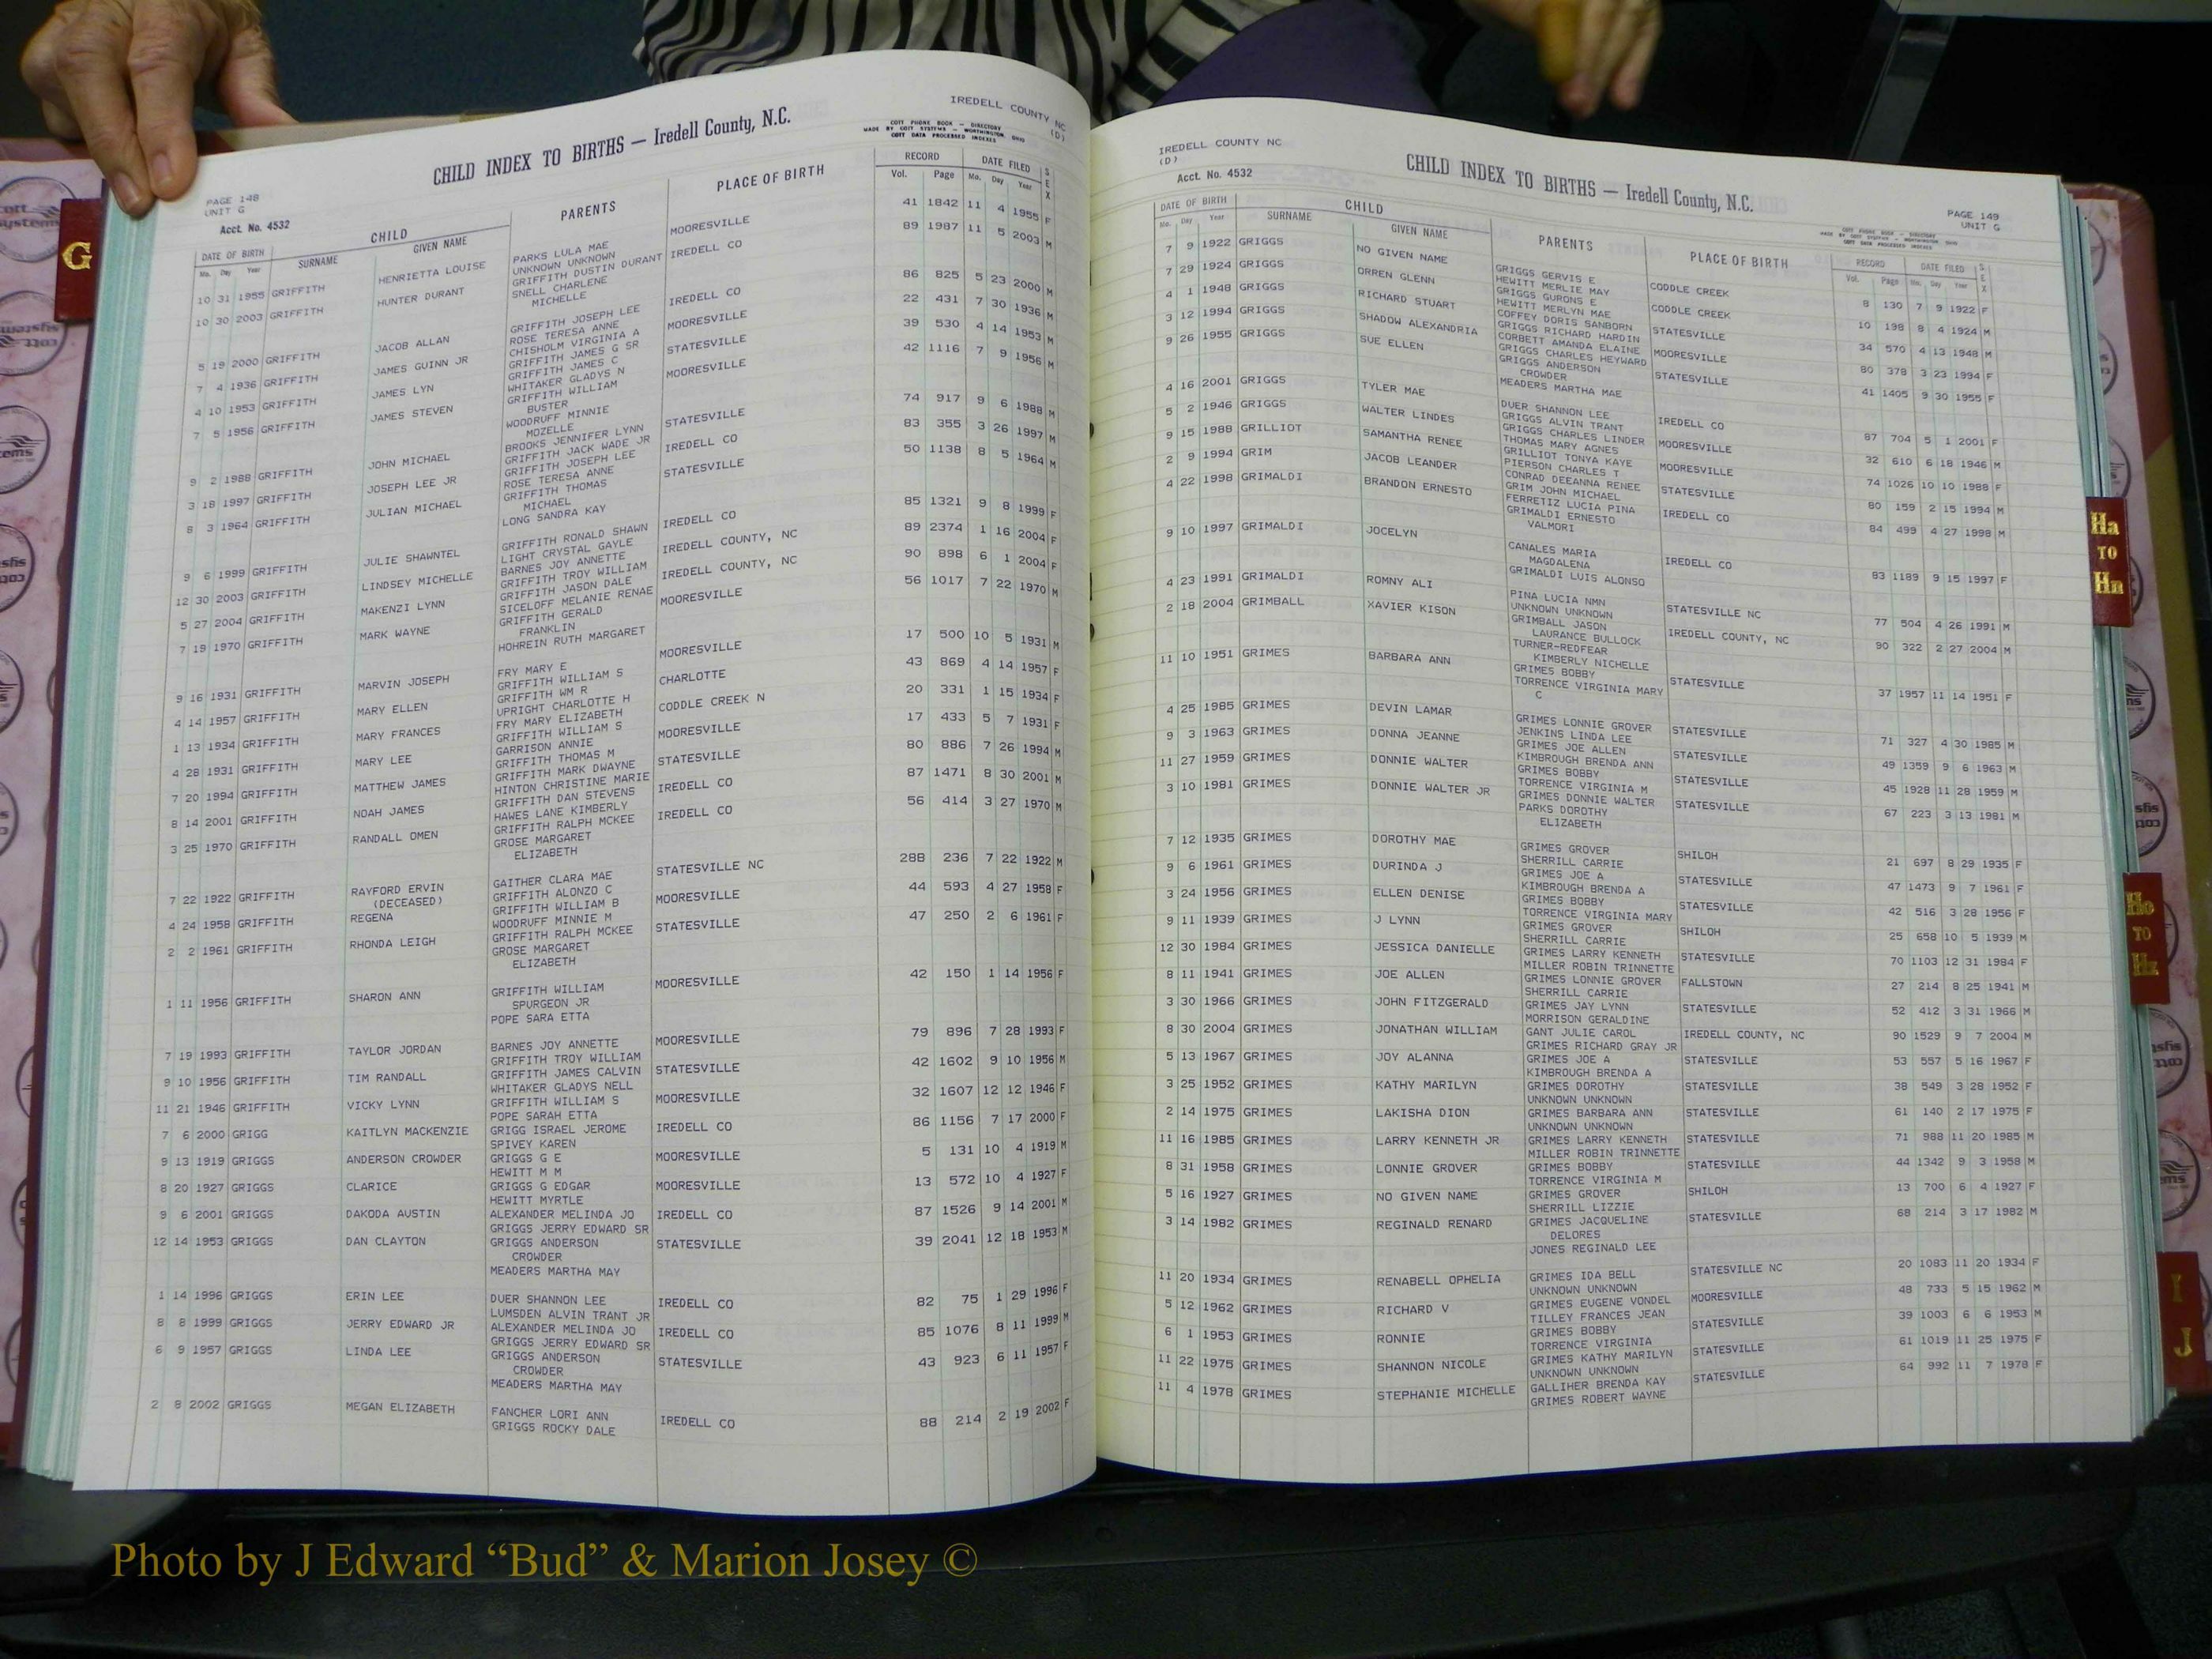 IREDELL COUNTY NC
(D)
CHILD INDEX TO BIRTHS — Iredell County, N.C.
COTT PHONE BOOK — DIRECTORY
MADE BY COTT SYSTEMS — WORTHINGTON, OHIO
COTT DATA PROCESSED INDEXES
PAGE 148
UNIT G
Acct. No. 4532
DATE OF BIRTH CHILD PARENTS PLACE OF BIRTH RECORD DATE FILED SEX
Mo. Day Year SURNAME GIVEN NAME Vol. Page Mo. Day Year
10 31 1955 GRIFFITH HENRIETTA LOUISE PARKS LULA MAE MOORESVILLE 41 1842 11 4 1955 F
UNKNOWN UNKNOWN
10 30 2003 GRIFFITH HUNTER DURANT GRIFFITH DUSTIN DURANT IREDELL CO 89 1987 11 5 2003 M
SNELL CHARLENE
MICHELLE
5 19 2000 GRIFFITH JACOB ALLAN GRIFFITH JOSEPH LEE IREDELL CO 86 825 5 23 2000 M
ROSE TERESA ANNE
7 4 1936 GRIFFITH JAMES GUINN JR CHISHOLM VIRGINIA A MOORESVILLE 22 431 7 30 1936 M
GRIFFITH JAMES G SR
4 10 1953 GRIFFITH JAMES LYN GRIFFITH JAMES C STATESVILLE 39 530 4 14 1953 M
WHITAKER GLADYS N
7 5 1956 GRIFFITH JAMES STEVEN GRIFFITH WILLIAM MOORESVILLE 42 1116 7 9 1956 M
BUSTER
WOODRUFF MINNIE
MOZELLE
9 2 1988 GRIFFITH JOHN MICHAEL BROOKS JENNIFER LYNN STATESVILLE 74 917 9 6 1988 M
GRIFFITH JACK WADE JR
3 18 1997 GRIFFITH JOSEPH LEE JR GRIFFITH JOSEPH LEE IREDELL CO 83 355 3 26 1997 M
ROSE TERESA ANNE
8 3 1964 GRIFFITH JULIAN MICHAEL GRIFFITH THOMAS STATESVILLE 50 1138 8 5 1964 M
MICHAEL
LONG SANDRA KAY
9 6 1999 GRIFFITH JULIE SHAWNTEL GRIFFITH RONALD SHAWN IREDELL CO 85 1321 9 8 1999 F
LIGHT CRYSTAL GAYLE
12 30 2003 GRIFFITH LINDSEY MICHELLE BARNES JOY ANNETTE IREDELL COUNTY, NC 89 2374 1 16 2004 F
GRIFFITH TROY WILLIAM
5 27 2004 GRIFFITH MAKENZI LYNN GRIFFITH JASON DALE IREDELL COUNTY, NC 90 898 6 1 2004 F
SICELOFF MELANIE RENAE
7 19 1970 GRIFFITH MARK WAYNE GRIFFITH GERALD MOORESVILLE 56 1017 7 22 1970 M
FRANKLIN
HOHREIN RUTH MARGARET
9 16 1931 GRIFFITH MARVIN JOSEPH FRY MARY E MOORESVILLE 17 500 10 5 1931 M
GRIFFITH WILLIAM S
4 14 1957 GRIFFITH MARY ELLEN GRIFFITH WM R CHARLOTTE 43 869 4 14 1957 F
UPRIGHT CHARLOTTE H
1 13 1934 GRIFFITH MARY FRANCES FRY MARY ELIZABETH CODDLE CREEK N 20 331 1 15 1934 F
GRIFFITH WILLIAM S
4 28 1931 GRIFFITH MARY LEE GARRISON ANNIE MOORESVILLE 17 433 5 7 1931 F
GRIFFITH THOMAS M
7 20 1994 GRIFFITH MATTHEW JAMES GRIFFITH MARK DWAYNE STATESVILLE 80 886 7 26 1994 M
HINTON CHRISTINE MARIE
8 14 2001 GRIFFITH NOAH JAMES GRIFFITH DAN STEVENS IREDELL CO 87 1471 8 30 2001 M
HAWES LANE KIMBERLY
3 25 1970 GRIFFITH RANDALL OMEN GRIFFITH RALPH MCKEE IREDELL CO 56 414 3 27 1970 M
GROSE MARGARET
ELIZABETH
7 22 1922 GRIFFITH RAYFORD ERVIN GAITHER CLARA MAE STATESVILLE NC 288 236 7 22 1922 M
(DECEASED) GRIFFITH ALONZO C
4 24 1958 GRIFFITH REGENA GRIFFITH WILLIAM B MOORESVILLE 44 593 4 27 1958 F
WOODRUFF MINNIE M
2 2 1961 GRIFFITH RHONDA LEIGH GRIFFITH RALPH MCKEE STATESVILLE 47 250 2 6 1961 F
GROSE MARGARET
ELIZABETH
1 11 1956 GRIFFITH SHARON ANN GRIFFITH WILLIAM MOORESVILLE 42 150 1 14 1956 F
SPURGEON JR
POPE SARA ETTA
7 19 1993 GRIFFITH TAYLOR JORDAN BARNES JOY ANNETTE MOORESVILLE 79 896 7 28 1993 F
GRIFFITH TROY WILLIAM
9 10 1956 GRIFFITH TIM RANDALL GRIFFITH JAMES CALVIN STATESVILLE 42 1602 9 10 1956 M
WHITAKER GLADYS NELL
11 21 1946 GRIFFITH VICKY LYNN GRIFFITH WILLIAM S MOORESVILLE 32 1607 12 12 1946 F
POPE SARAH ETTA
7 6 2000 GRIGG KAITLYN MACKENZIE GRIGG ISRAEL JEROME IREDELL CO 86 1156 7 17 2000 F
SPIVEY KAREN
9 13 1919 GRIGGS ANDERSON CROWDER GRIGGS G E MOORESVILLE 5 131 10 4 1919 M
HEWITT M M
8 20 1927 GRIGGS CLARICE GRIGGS G EDGAR MOORESVILLE 13 572 10 4 1927 F
HEWITT MYRTLE
9 6 2001 GRIGGS DAKODA AUSTIN ALEXANDER MELINDA JO IREDELL CO 87 1526 9 14 2001 M
GRIGGS JERRY EDWARD SR
12 14 1953 GRIGGS DAN CLAYTON GRIGGS ANDERSON STATESVILLE 39 2041 12 18 1953 M
CROWDER
MEADERS MARTHA MAY
1 14 1996 GRIGGS ERIN LEE DUER SHANNON LEE IREDELL CO 82 75 1 29 1996 F
LUMSDEN ALVIN TRANT JR
8 8 1999 GRIGGS JERRY EDWARD JR ALEXANDER MELINDA JO IREDELL CO 85 1076 8 11 1999 M
GRIGGS JERRY EDWARD SR
6 9 1957 GRIGGS LINDA LEE GRIGGS ANDERSON STATESVILLE 43 923 6 11 1957 F
CROWDER
MEADERS MARTHA MAY
2 8 2002 GRIGGS MEGAN ELIZABETH FANCHER LORI ANN IREDELL CO 88 214 2 19 2002 F
GRIGGS ROCKY DALE
IREDELL COUNTY NC
(D)
CHILD INDEX TO BIRTHS — Iredell County, N.C.
Acct. No. 4532
PAGE 149
UNIT G
COTT PHONE BOOK — DIRECTORY
MADE BY COTT SYSTEMS — WORTHINGTON, OHIO
COTT DATA PROCESSED INDEXES
DATE OF BIRTH CHILD PARENTS PLACE OF BIRTH RECORD DATE FILED SEX
Mo. Day Year SURNAME GIVEN NAME Vol. Page Mo. Day Year
7 9 1922 GRIGGS NO GIVEN NAME GRIGGS GERVIS E CODDLE CREEK 8 130 7 9 1922 F
HEWITT MERLIE MAY
7 29 1924 GRIGGS ORREN GLENN GRIGGS GURONS E CODDLE CREEK 10 198 8 4 1924 M
HEWITT MERLYN MAE
4 1 1948 GRIGGS RICHARD STUART COFFEY DORIS SANBORN STATESVILLE 34 570 4 13 1948 M
GRIGGS RICHARD HARDIN
3 12 1994 GRIGGS SHADOW ALEXANDRIA CORBETT AMANDA ELAINE MOORESVILLE 80 378 3 23 1994 F
GRIGGS CHARLES HEYWARD
9 26 1955 GRIGGS SUE ELLEN GRIGGS ANDERSON STATESVILLE 41 1405 9 30 1955 F
CROWDER
MEADERS MARTHA MAE
4 16 2001 GRIGGS TYLER MAE DUER SHANNON LEE IREDELL CO 87 704 5 1 2001 F
GRIGGS ALVIN TRANT
5 2 1946 GRIGGS WALTER LINDES GRIGGS CHARLES LINDER MOORESVILLE 32 610 6 18 1946 M
THOMAS MARY AGNES
9 15 1988 GRILLIOT SAMANTHA RENEE GRILLIOT TONYA KAYE MOORESVILLE 74 1026 10 10 1988 F
PIERSON CHARLES T
2 9 1994 GRIM JACOB LEANDER CONRAD DEEANNA RENEE STATESVILLE 80 159 2 15 1994 M
GRIM JOHN MICHAEL
4 22 1998 GRIMALDI BRANDON ERNESTO FERRETIZ LUCIA PINA IREDELL CO 84 499 4 27 1998 M
GRIMALDI ERNESTO
VALMORI
9 10 1997 GRIMALDI JOCELYN CANALES MARIA IREDELL CO 83 1189 9 15 1997 F
MAGDALENA
GRIMALDI LUIS ALONSO
4 23 1991 GRIMALDI ROMNY ALI PINA LUCIA NMN STATESVILLE NC 77 504 4 26 1991 M
UNKNOWN UNKNOWN
2 18 2004 GRIMBALL XAVIER KISON GRIMBALL JASON IREDELL COUNTY, NC 90 322 2 27 2004 M
LAURANCE BULLOCK
TURNER-REDFEAR
KIMBERLY NICHELLE
11 10 1951 GRIMES BARBARA ANN GRIMES BOBBY STATESVILLE 37 1957 11 14 1951 F
TORRENCE VIRGINIA MARY
C
4 25 1985 GRIMES DEVIN LAMAR GRIMES LONNIE GROVER STATESVILLE 71 327 4 30 1985 M
JENKINS LINDA LEE
9 3 1963 GRIMES DONNA JEANNE GRIMES JOE ALLEN STATESVILLE 49 1359 9 6 1963 M
KIMBROUGH BRENDA ANN
11 27 1959 GRIMES DONNIE WALTER GRIMES BOBBY STATESVILLE 45 1928 11 28 1959 M
TORRENCE VIRGINIA M
3 10 1981 GRIMES DONNIE WALTER JR GRIMES DONNIE WALTER STATESVILLE 67 223 3 13 1981 M
PARKS DOROTHY
ELIZABETH
7 12 1935 GRIMES DOROTHY MAE GRIMES GROVER SHILOH 21 697 8 29 1935 F
SHERRILL CARRIE
9 6 1961 GRIMES DURINDA J GRIMES JOE A STATESVILLE 47 1473 9 7 1961 F
KIMBROUGH BRENDA A
3 24 1956 GRIMES ELLEN DENISE GRIMES BOBBY STATESVILLE 42 516 3 28 1956 F
TORRENCE VIRGINIA MARY
9 11 1939 GRIMES J LYNN GRIMES GROVER SHILOH 25 658 10 5 1939 M
SHERRILL CARRIE
12 30 1984 GRIMES JESSICA DANIELLE GRIMES LARRY KENNETH STATESVILLE 70 1103 12 31 1984 F
MILLER ROBIN TRINNETTE
8 11 1941 GRIMES JOE ALLEN GRIMES LONNIE GROVER FALLSTOWN 27 214 8 25 1941 M
SHERRILL CARRIE
3 30 1966 GRIMES JOHN FITZGERALD GRIMES JAY LYNN STATESVILLE 52 412 3 31 1966 M
MORRISON GERALDINE
8 30 2004 GRIMES JONATHAN WILLIAM GANT JULIE CAROL IREDELL COUNTY, NC 90 1529 9 7 2004 M
GRIMES RICHARD GRAY JR
5 13 1967 GRIMES JOY ALANNA GRIMES JOE A STATESVILLE 53 557 5 16 1967 F
KIMBROUGH BRENDA A
3 25 1952 GRIMES KATHY MARILYN GRIMES DOROTHY STATESVILLE 38 549 3 28 1952 F
UNKNOWN UNKNOWN
2 14 1975 GRIMES LAKISHA DION GRIMES BARBARA ANN STATESVILLE 61 140 2 17 1975 F
UNKNOWN UNKNOWN
11 16 1985 GRIMES LARRY KENNETH JR GRIMES LARRY KENNETH STATESVILLE 71 988 11 20 1985 M
MILLER ROBIN TRINNETTE
8 31 1958 GRIMES LONNIE GROVER GRIMES BOBBY STATESVILLE 44 1342 9 3 1958 M
TORRENCE VIRGINIA M
5 16 1927 GRIMES NO GIVEN NAME GRIMES GROVER SHILOH 13 700 6 4 1927 F
SHERRILL LIZZIE
3 14 1982 GRIMES REGINALD RENARD GRIMES JACQUELINE STATESVILLE 68 214 3 17 1982 M
DELORES
JONES REGINALD LEE
11 20 1934 GRIMES RENABELL OPHELIA GRIMES IDA BELL STATESVILLE NC 20 1083 11 20 1934 F
UNKNOWN UNKNOWN
5 12 1962 GRIMES RICHARD V GRIMES EUGENE VONDEL MOORESVILLE 48 733 5 15 1962 M
TILLEY FRANCES JEAN
6 1 1953 GRIMES RONNIE GRIMES BOBBY STATESVILLE 39 1003 6 6 1953 M
TORRENCE VIRGINIA
11 22 1975 GRIMES SHANNON NICOLE GRIMES KATHY MARILYN STATESVILLE 61 1019 11 25 1975 F
UNKNOWN UNKNOWN
11 4 1978 GRIMES STEPHANIE MICHELLE GALLIHER BRENDA KAY STATESVILLE 64 992 11 7 1978 F
GRIMES ROBERT WAYNE
G
Ha
TO
Hn
Ho
TO
Hz
I
J
Photo by J Edward “Bud” & Marion Josey ©